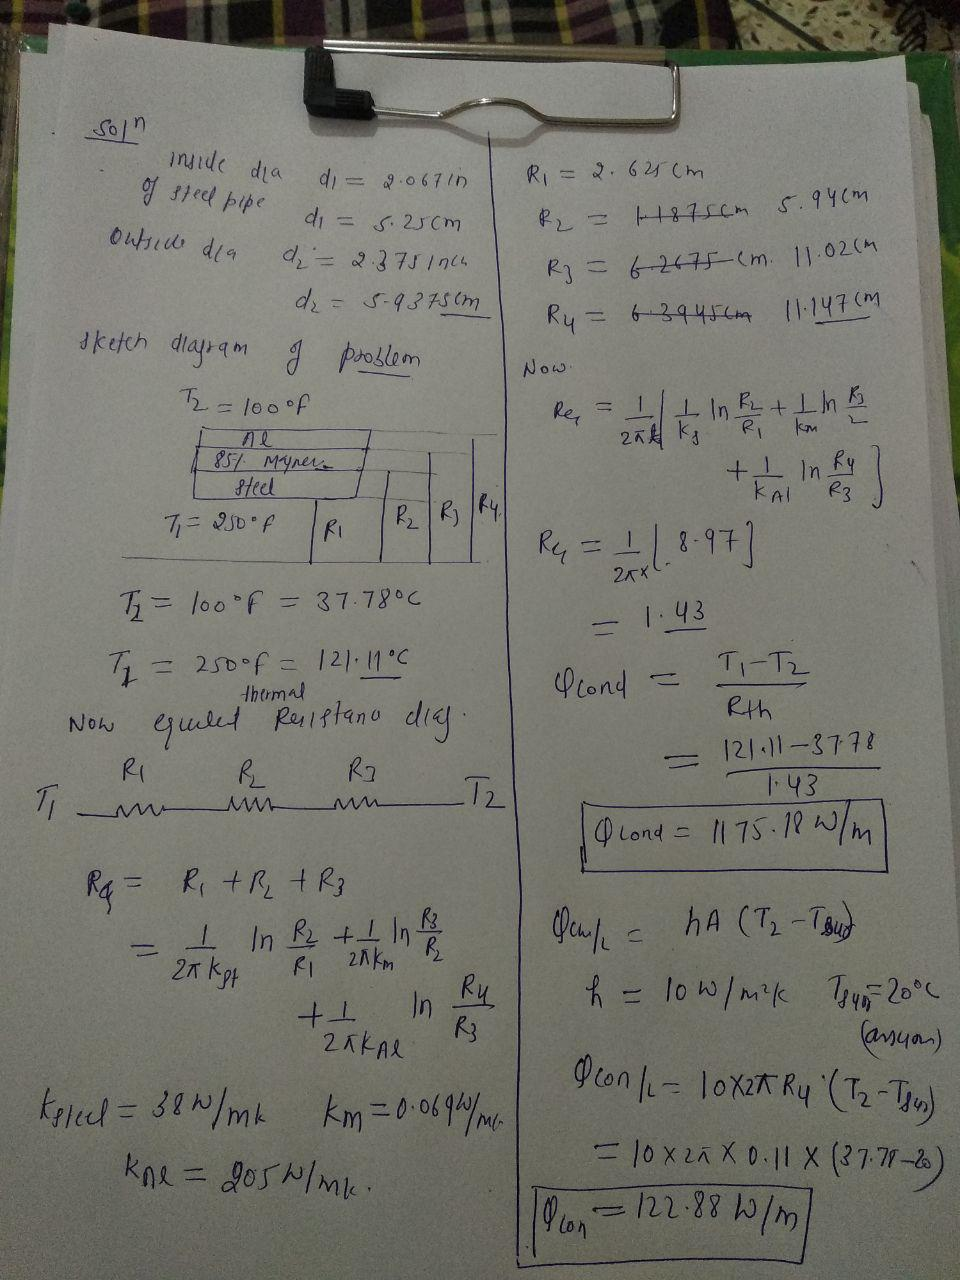 Sol n
inside dia d1 = 2.067 in
of steel pipe
d1 = 5.25cm
Outside dia d2 = 2.375 inch
d2 = 5.9375cm
Sketch diagram of problem
T2 = 100°F
Al
85% Magnes.
Steel
T1 = 250°F R1 R2 R3 R4
T2 = 100°F = 37.78°C
T1 = 250°F = 121.11°C
thermal
Now Resistance diag.
R1 R2 R3
T1 T2
Req = R1 + R2 + R3
= 1/2πkst ln R2/R1 + 1/2πkm ln R3/R2
+ 1/2πkAl ln R4/R3
ksteel = 38 W/mk km = 0.069 W/mk
kAl = 205 W/mk.
R1 = 2.625cm
R2 = 1.1875cm 5.94cm
R3 = 6.2675 cm. 11.02cm
R4 = 6.3945cm 11.147cm
Now.
Req = 1/2π [ 1/ks ln R2/R1 + 1/km ln R3/2
+ 1/kAl ln R4/R3 ]
Req = 1/2π × [8.97]
= 1.43
Qcond = T1-T2/Rth
= 121.11-37.78/1.43
Qcond = 1175.18 W/m
Qcon/L = hA (T2-Tsur)
h = 10 W/m²k Tsur = 20°C
(assum)
Qcon/L = 10×2π R4 · (T2-Tsur)
= 10×2π×0.11×(37.78-20)
Qcon = 122.88 W/m